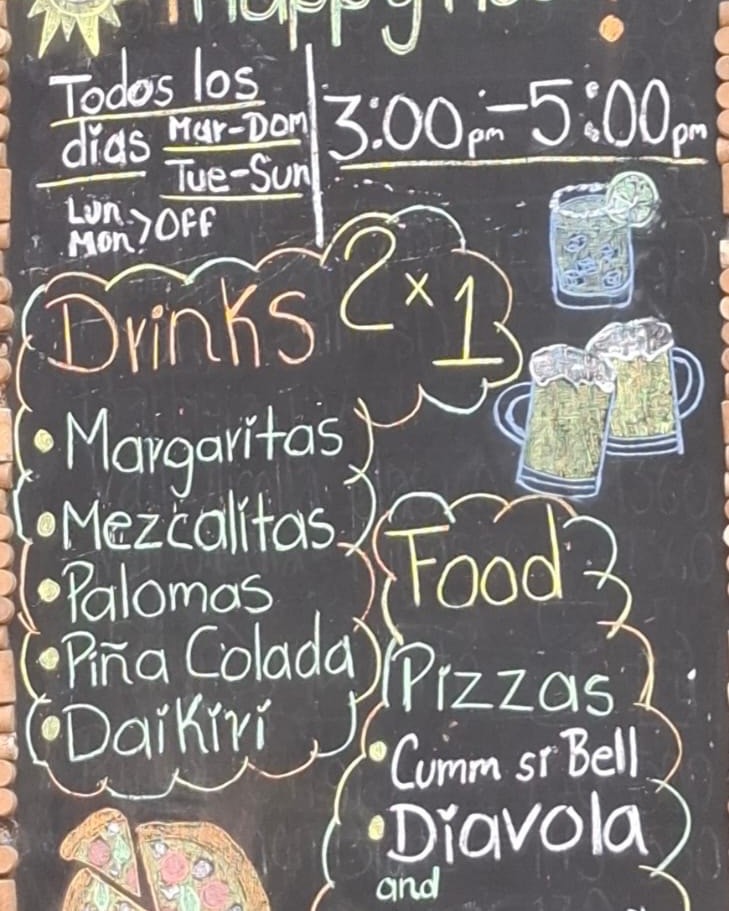 Happy
Todos los
días Mar-Dom
Tue-Sun
3:00pm-5:00pm
Lun
Mon > OFF
Drinks 2x1
• Margaritas
• Mezcalitas
• Palomas
• Piña Colada
• Daikiri
Food
Pizzas
• Cumm sr Bell
• Diavola
and